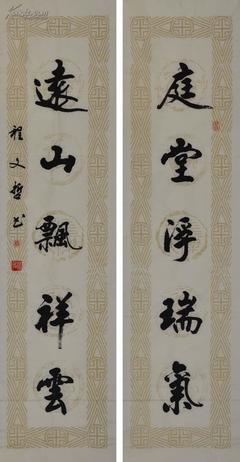 庭堂浮瑞氣
遠山飄祥雲
程文哲书